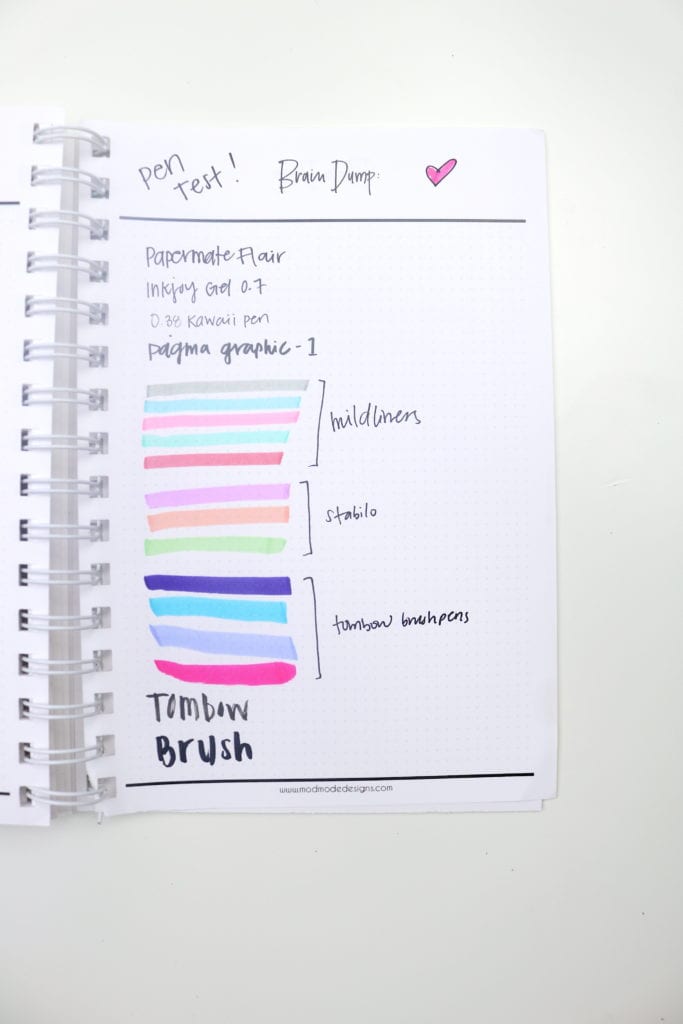 pen
Test!
Brain Dump:
Papermate Flair
Inkjoy Gel 0.7
0.38 Kawaii pen
pigma graphic - 1
mildliners
stabilo
tombow brushpens
Tombow
Brush
www.modmodedesigns.com